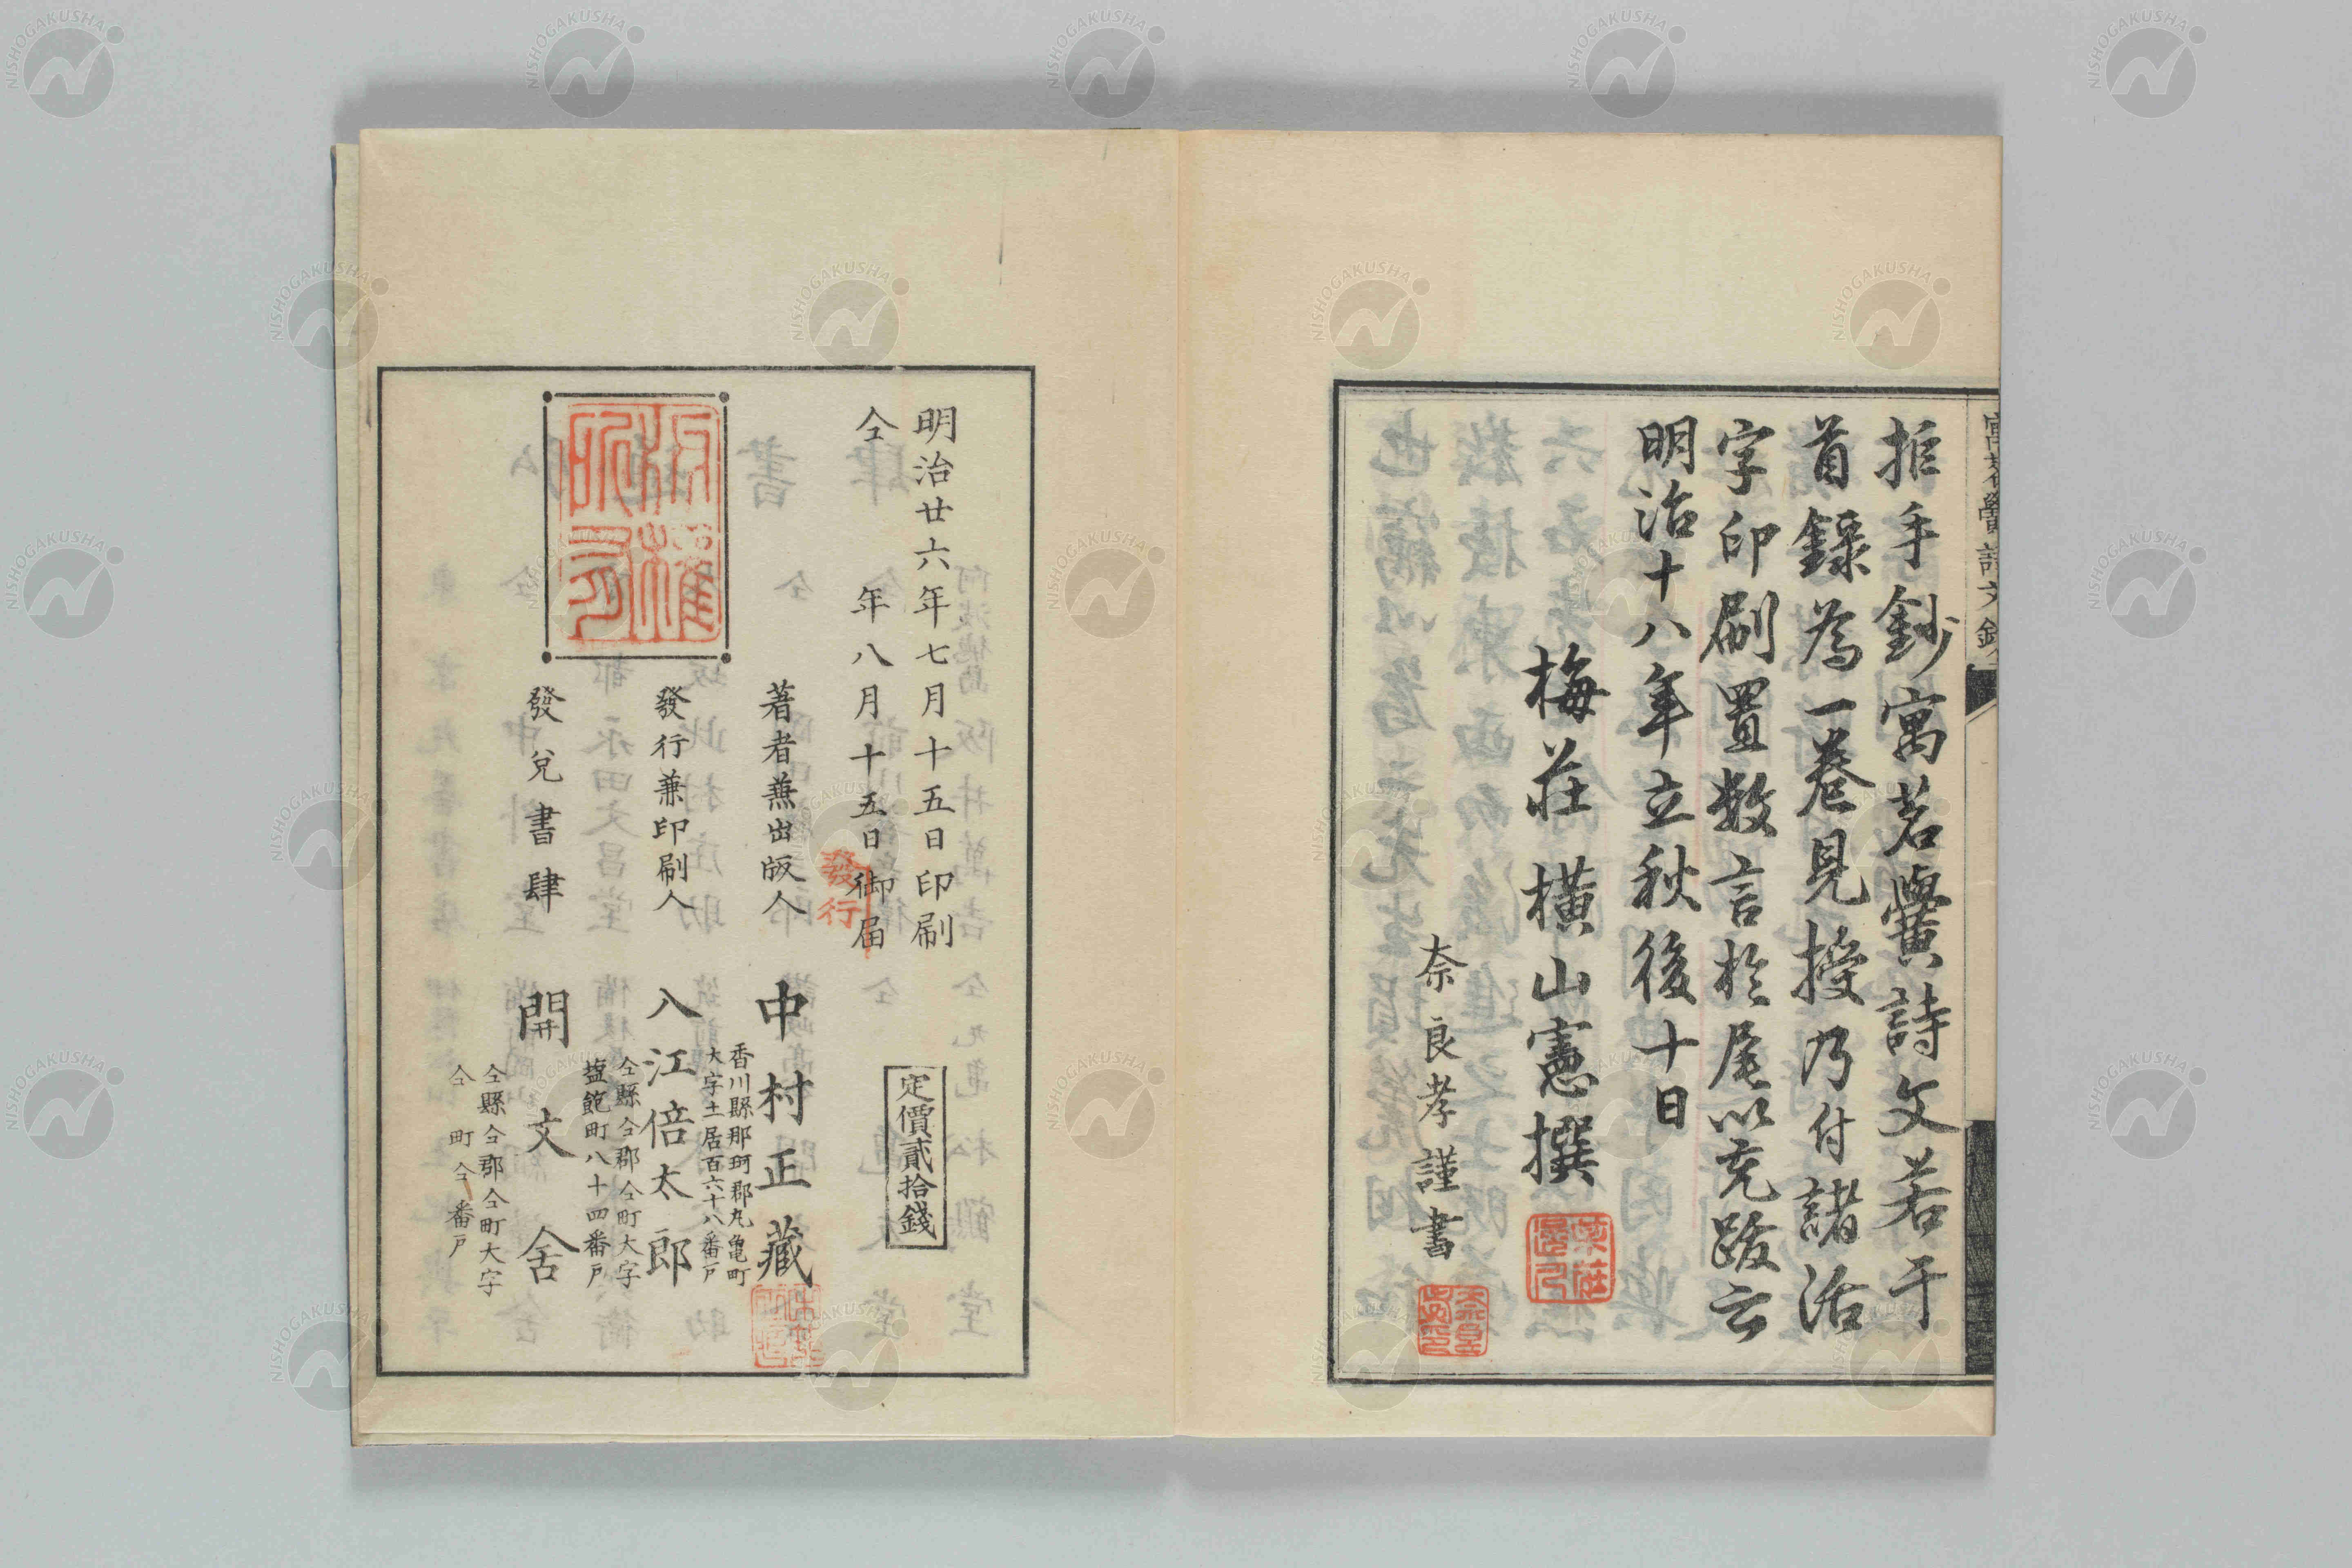 拒手鈔寓茗黌詩文若干
首錄為一卷見授乃付諸活
字印刷置数言於尾以充跋云
明治十八年立秋後十日
梅莊 横山憲撰
奈良孝謹書
明治廿六年七月十五日印刷
仝 年八月十五日御届
發行
定價貳拾錢
著者兼出版人 中村正藏
香川縣那珂郡丸亀町
大字土居百六十八番戸
發行兼印刷人 八江倍太郎
仝縣仝郡仝町大字
塩飽町八十四番戸
發兌書肆 開文舍
仝縣仝郡仝町大字
仝町仝番戸
版權所有
NISHOGAKUSHA